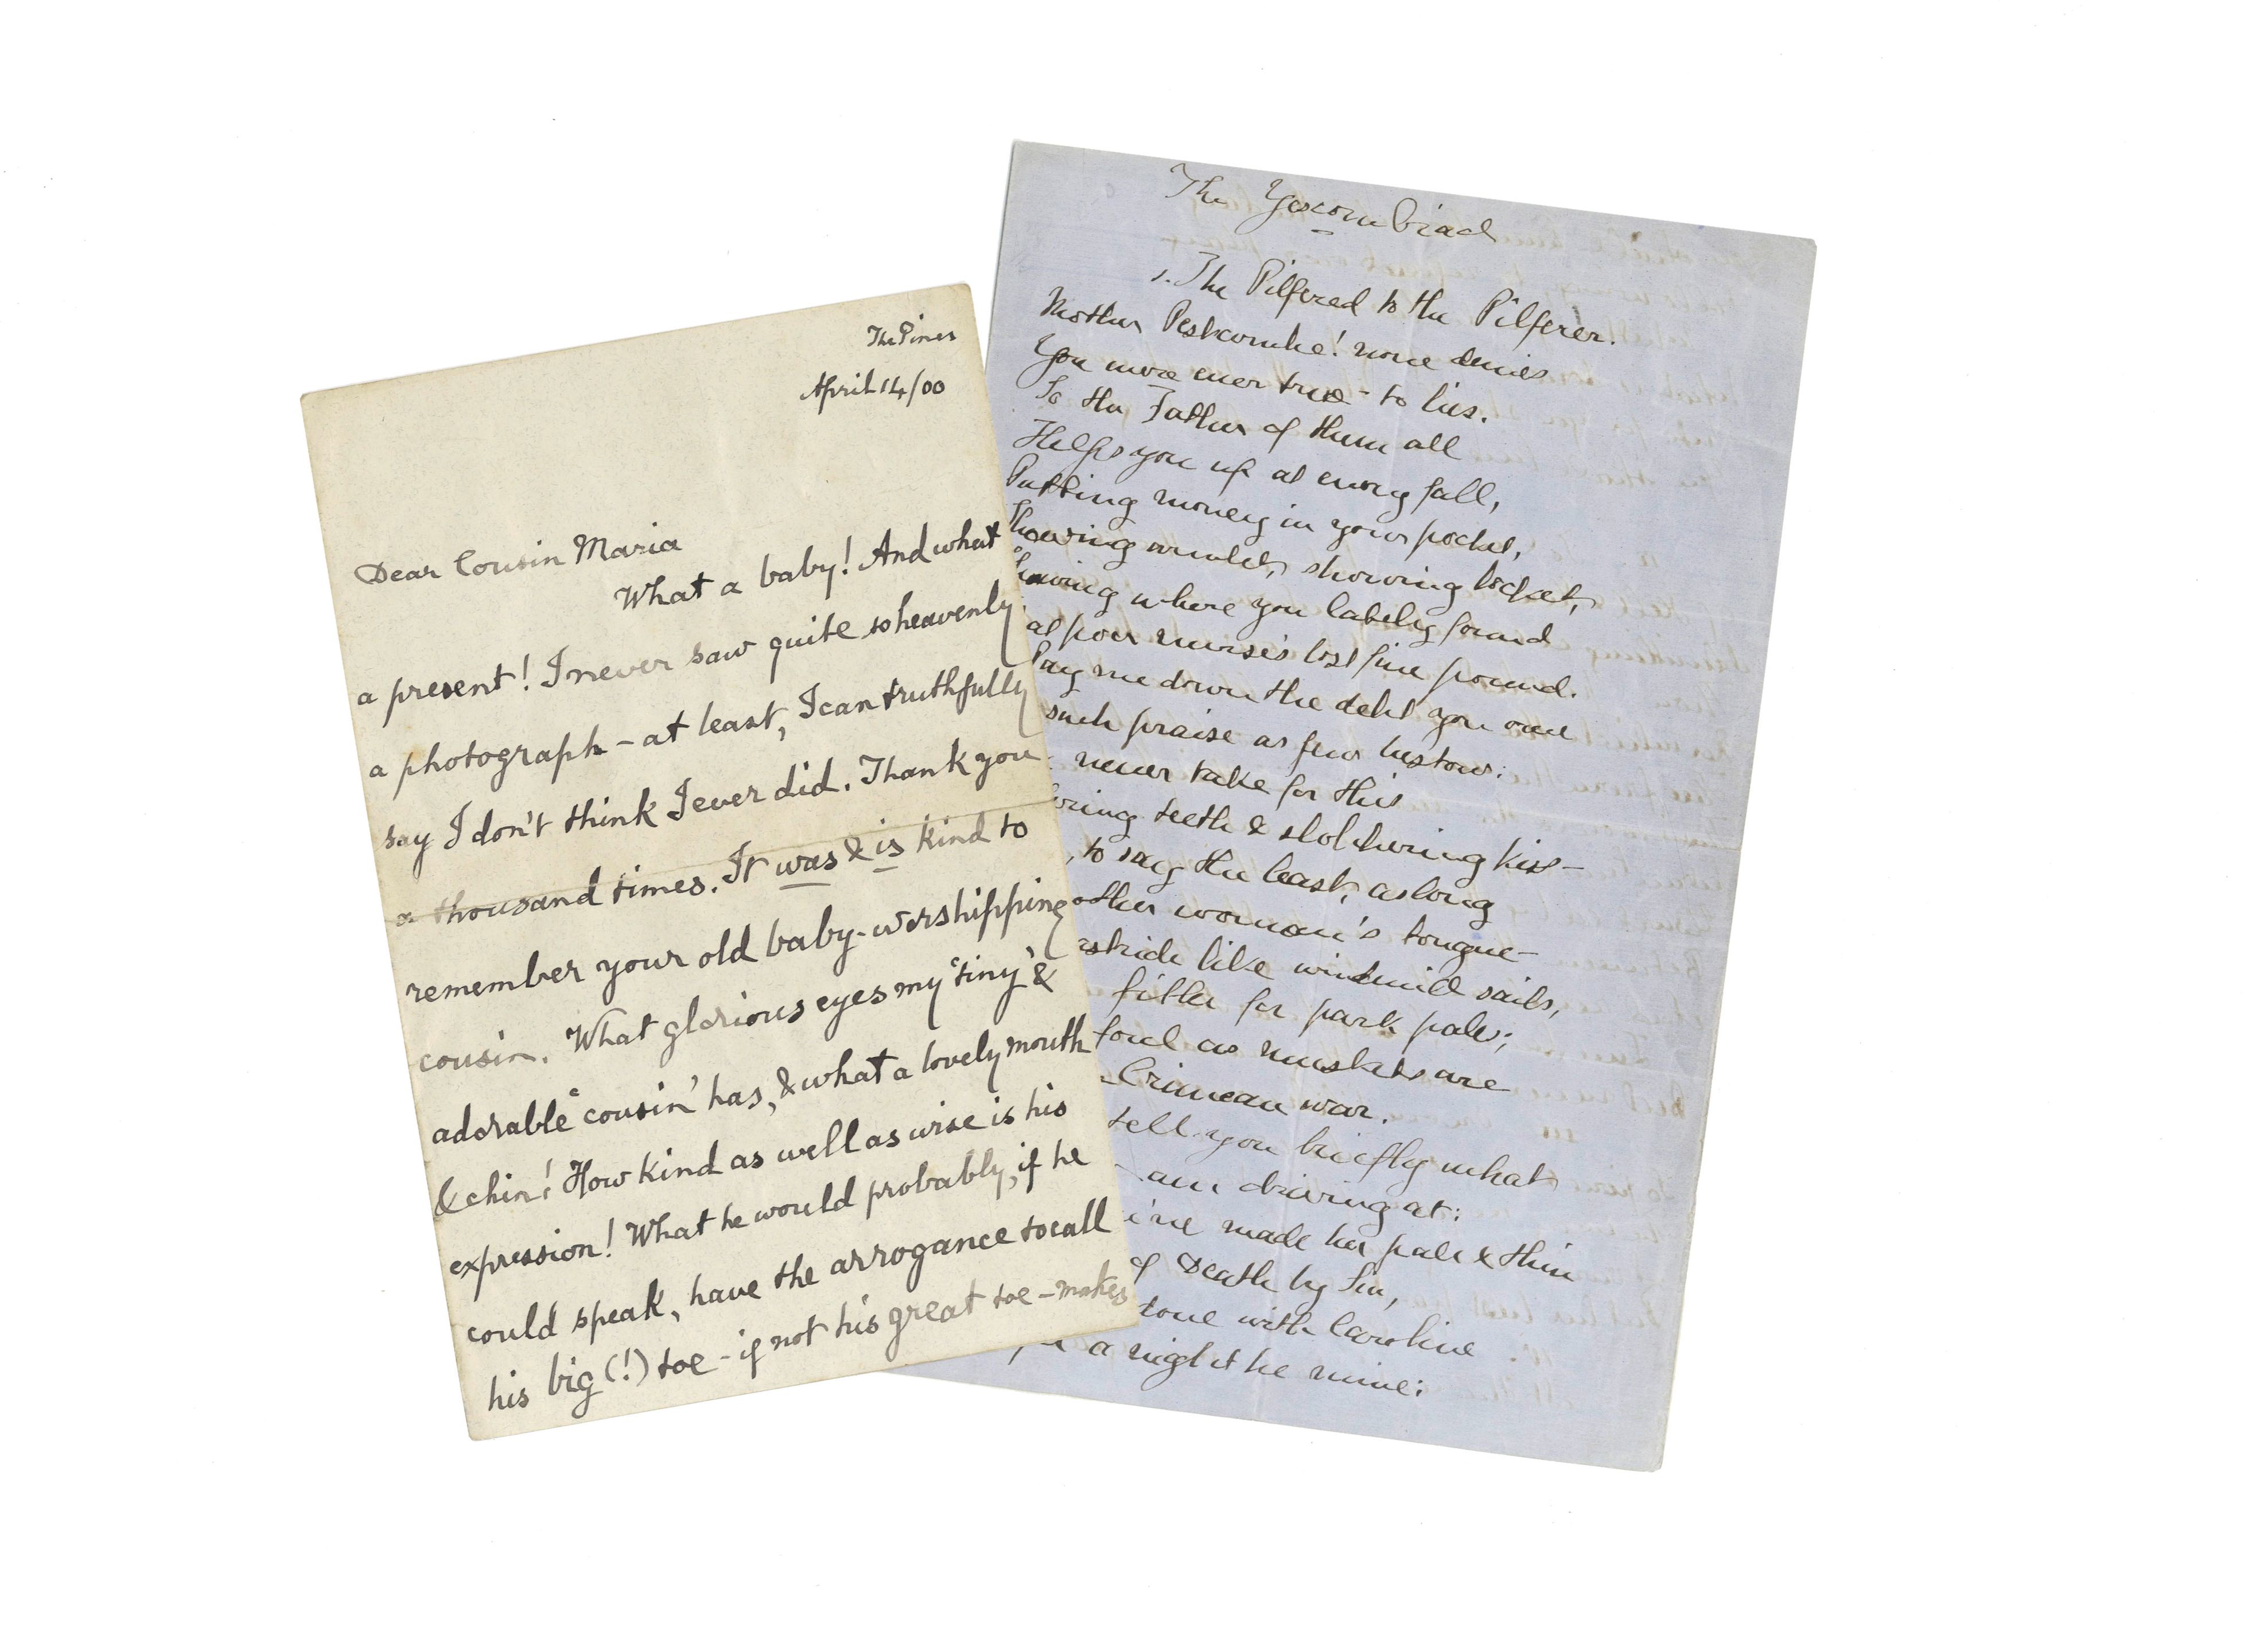 The Pines
April 14/00
Dear Cousin Maria
What a baby! And what
a present! I never saw quite so heavenly
a photograph – at least, I can truthfully
say I don't think I ever did. Thank you
a thousand times. It was & is kind to
remember your old baby-worshipping
cousin. What glorious eyes my 'tiny' &
adorable 'cousin' has, & what a lovely mouth
& chin! How kind as well as wise is his
expression! What he would probably, if he
could speak, have the arrogance to call
his big (!) toe – if not his great toe – makes
The Yescombiad
1. The Pilfered to the Pilferer.
Mother Peskcombe! none denies
You were ever true – to lies.
So the Father of them all
Helps you up at every fall,
Putting money in your pocket,
Showing armlet, showing locket,
Showing where you lately found
at poor nurse's lost five pound.
Pay me down the debt you owe
such praise as few bestow:
never take for this
teeth & slobbering kiss –
, to say the least, as long
other woman's tongue –
astride like windmill sails,
fitter for park pales;
foul as muskets are
Crimean war.
tell you briefly what
am driving at:
made her pale & thin
of Death by Sin,
tone with Caroline
a night be mine: